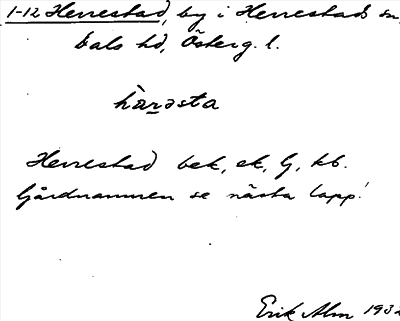 1-12 Herrestad, by i Herrestads sn,
Dals hd, Österg. l.
hàrǝsta
Herrestad bek, ek, G, kb.
Gårdnamnen se nästa lapp!
Erik Alm 1932